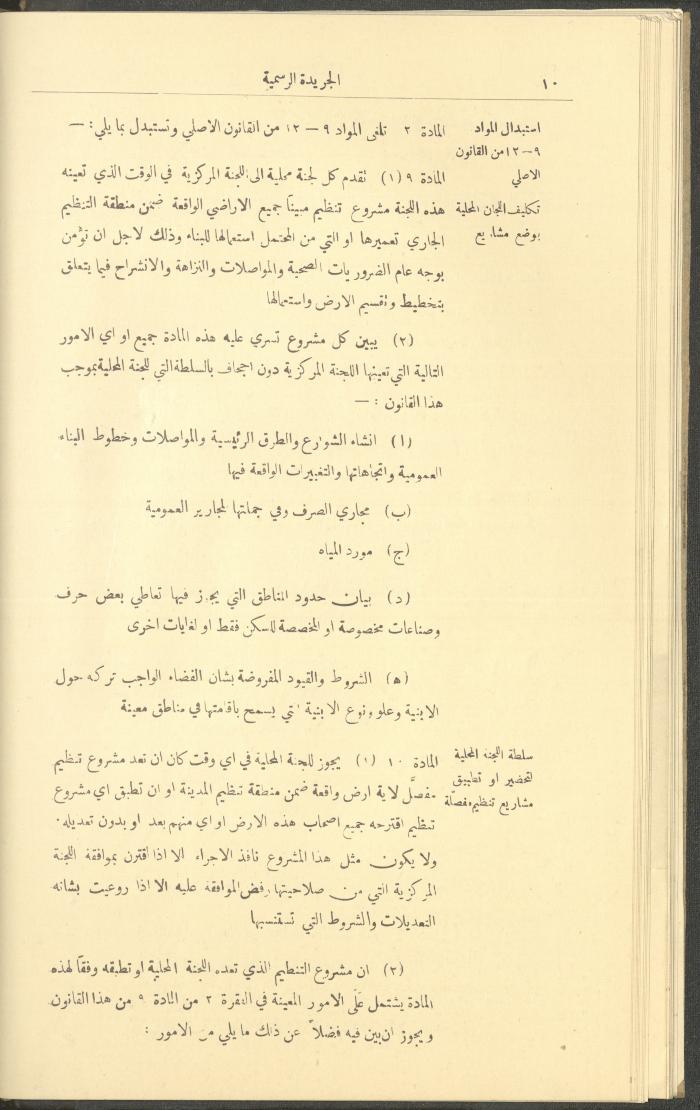 ١٠
الجريدة الرسمية
استبدال المواد
٩—١٢ من القانون
الاصلي
المادة ٢ تلغى المواد ٩ — ١٢ من القانون الاصلي وتستبدل بما يلي : —
تكليف اللجان المحلية
بوضع مشاريع
المادة ٩ (١) تقدم كل لجنة محلية الى اللجنة المركزية في الوقت الذي تعينه
هذه اللجنة مشروع تنظيم مبيناً جميع الاراضي الواقعة ضمن منطقة التنظيم
الجاري تعميرها او التي من المحتمل استعمالها للبناء وذلك لاجل ان تؤمن
بوجه عام الضروريات الصحية والمواصلات والنزاهة والانشراح فيما يتعلق
بتخطيط وتقسيم الارض واستعمالها
(٢) يبين كل مشروع تسري عليه هذه المادة جميع او اي الامور
التالية التي تعينها اللجنة المركزية دون اجحاف بالسلطة التي للجنة المحلية بموجب
هذا القانون : —
(ا) انشاء الشوارع والطرق الرئيسية والمواصلات وخطوط البناء
العمومية واتجاهاتها والتغييرات الواقعة فيها
(ب) مجاري الصرف وفي جملتها المجارير العمومية
(ج) مورد المياه
(د) بيان حدود المناطق التي يجوز فيها تعاطي بعض حرف
وصناعات مخصوصة او المخصصة للسكن فقط او لغايات اخرى
(ه) الشروط والقيود المفروضة بشان الفضاء الواجب تركه حول
الابنية وعلو ونوع الابنية التي يسمح باقامتها في مناطق معينة
سلطة اللجنة المحلية
لتحضير او تطبيق
مشاريع تنظيم مفصّلة
المادة ١٠ (١) يجوز للجنة المحلية في اي وقت كان ان تعد مشروع تنظيم
مفصَّل لاية ارض واقعة ضمن منطقة تنظيم المدينة او ان تطبق اي مشروع
تنظيم اقترحه جميع اصحاب هذه الارض او اي منهم بعد او بدون تعديله .
ولا يكون مثل هذا المشروع نافذ الاجراء الا اذا اقترن بموافقة اللجنة
المركزية التي من صلاحيتها رفض الموافقة عليه الا اذا روعيت بشانه
التعديلات والشروط التي تستنسبها
(٢) ان مشروع التنظيم الذي تعده اللجنة المحلية او تطبقه وفقاً لهذه
المادة يشتمل عَلَى الامور المعينة في الفقرة ٢ من المادة ٩ من هذا القانون
ويجوز ان يبين فيه فضلاً عن ذلك ما يلي من الامور :